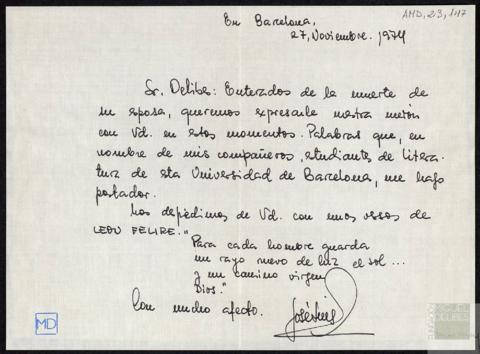 En Barcelona,
AMD, 23, 147
27, Noviembre. 1974
Sr. Delibes: Enterados de la muerte de
su esposa, queremos expresarle nuestra unión
con Vd. en estos momentos. Palabras que, en
nombre de mis compañeros, estudiantes de Litera-
tura de esta Universidad de Barcelona, me hago
portador.
Nos despedimos de Vd. con unos versos de
LEÓN FELIPE. "
Para cada hombre guarda
un rayo nuevo de luz el sol...
y un camino virgen
Dios."
Con mucho afecto.
José Luis
MD
FUNDACIÓN
MIGUEL
DELIBES